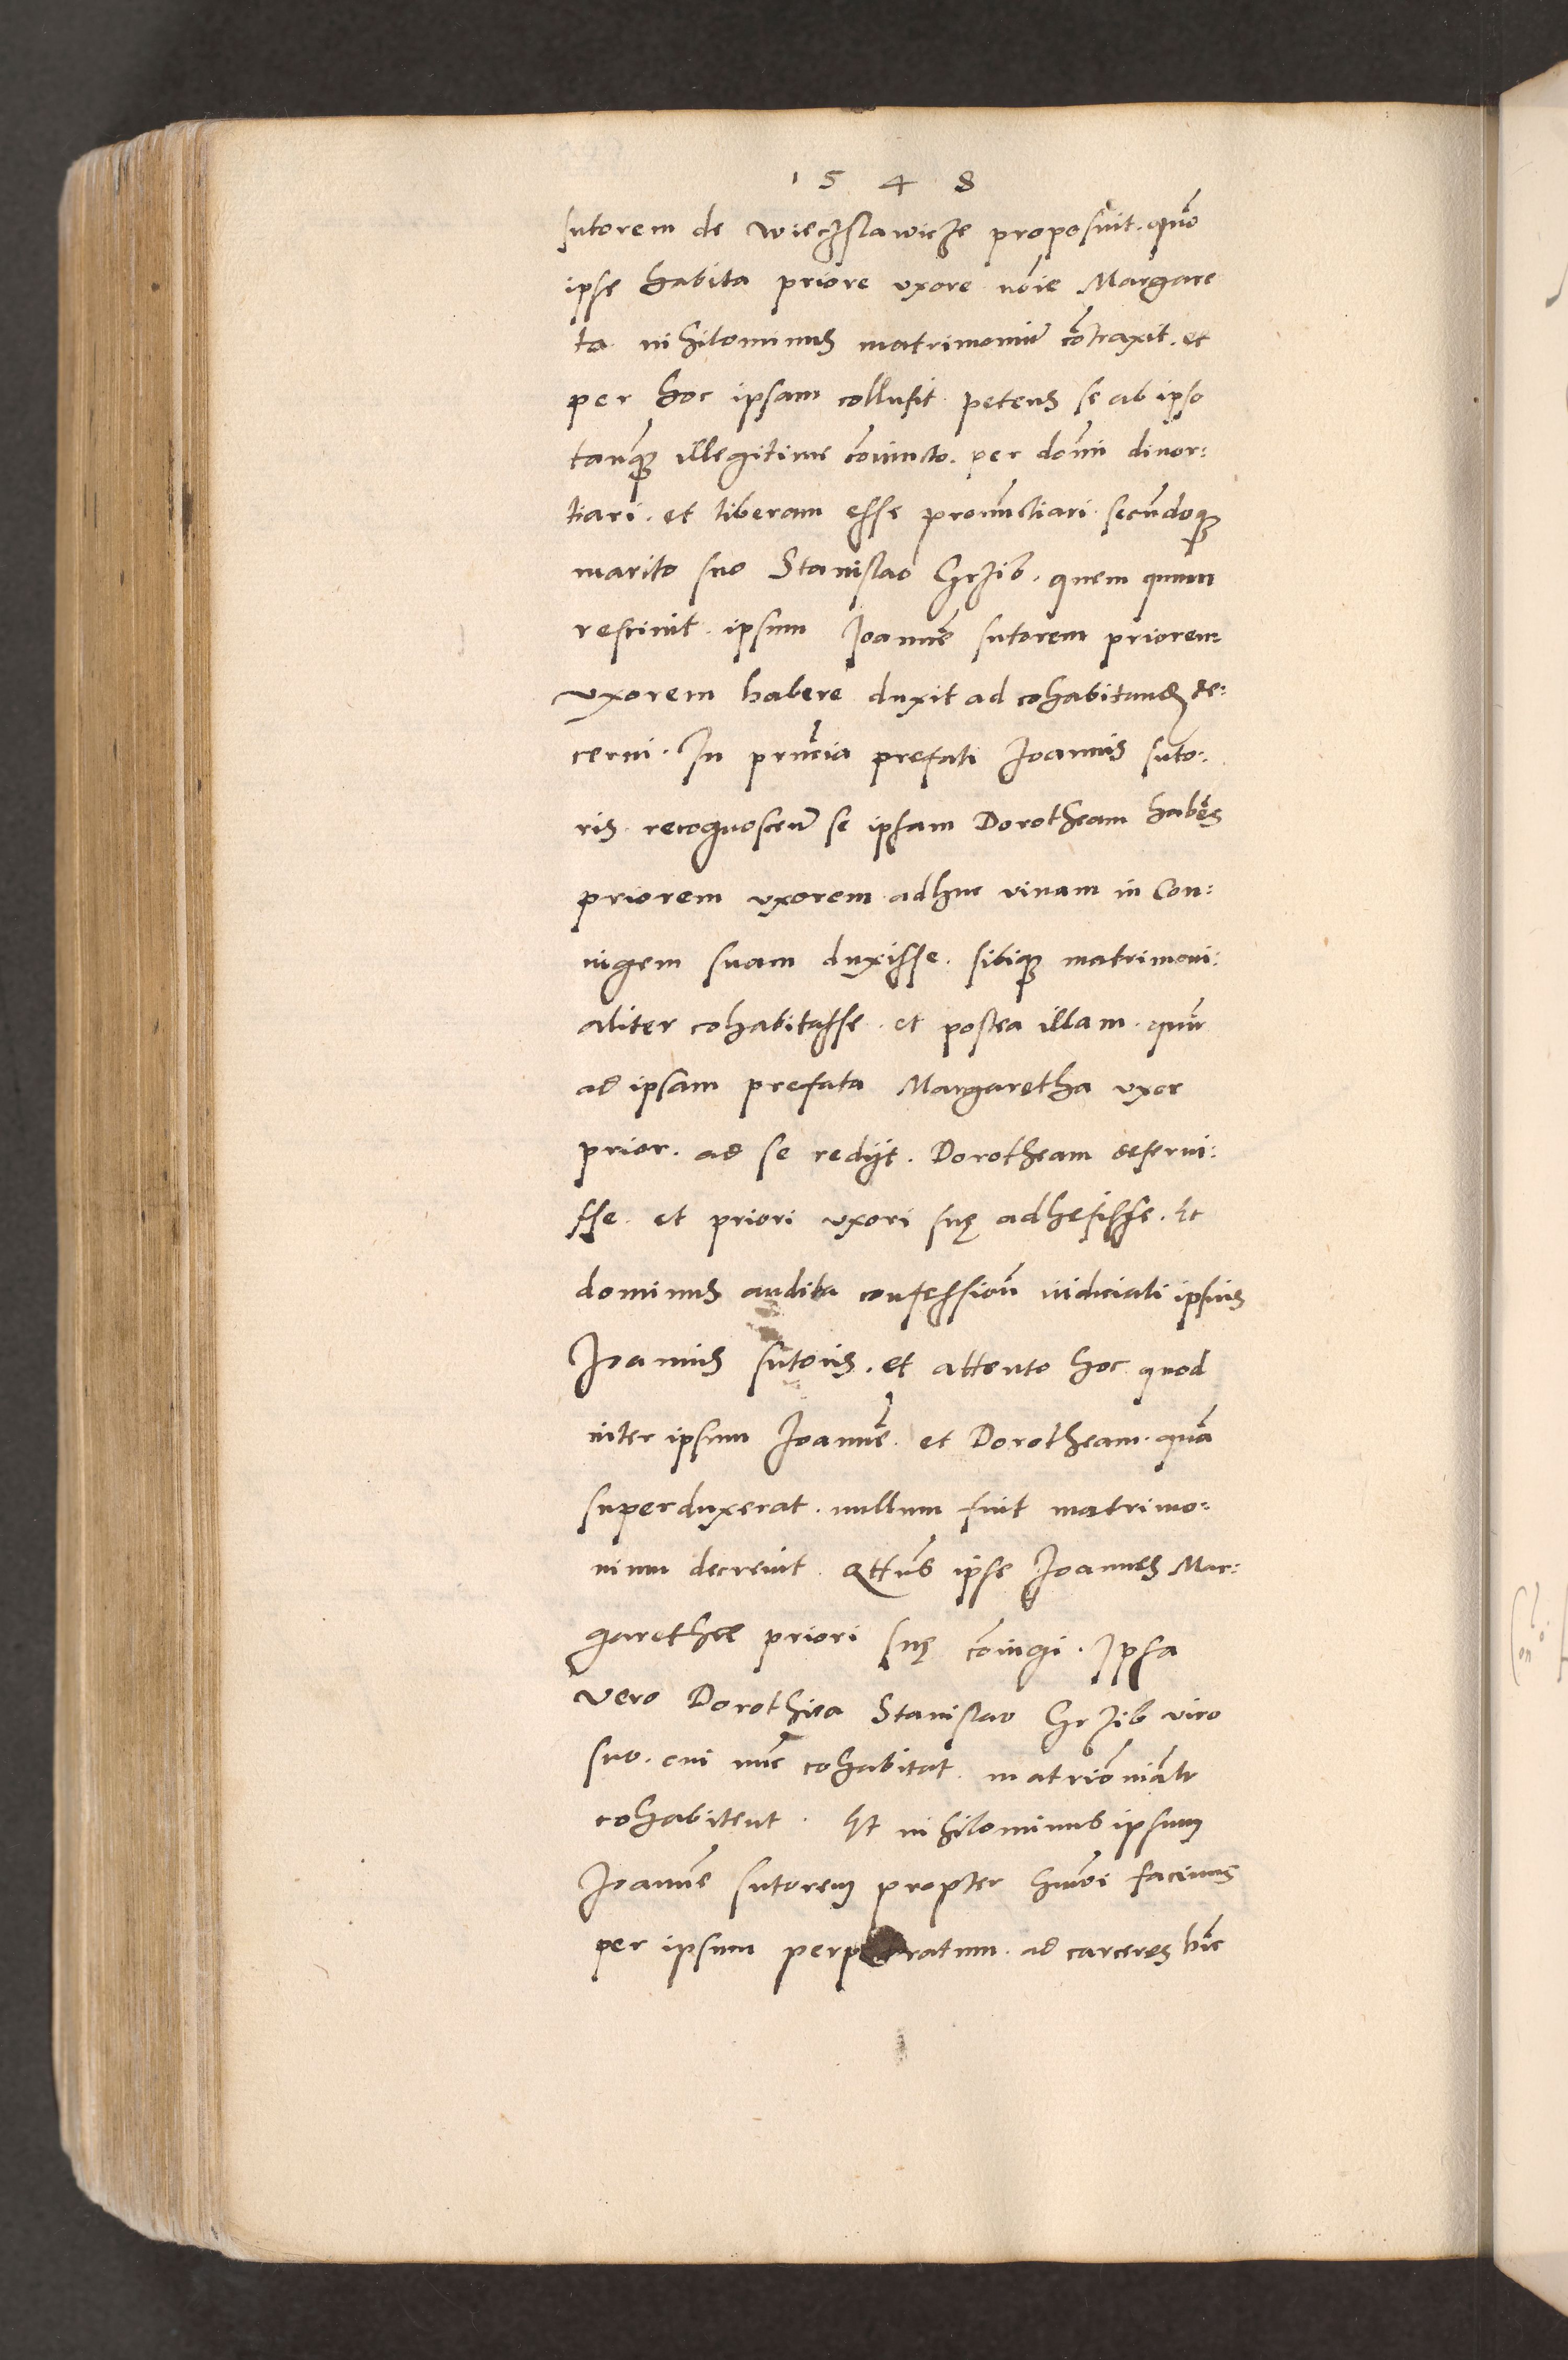 1548
sutorem de Wieczslawicze proposuit. quō
ipse habita priore uxore noīe Margare
ta nihilominus matrimoniū cōtraxit. et
per hoc ipsam collusit petens se ab ipso
tanq̄ illegitime cōiuncto. per dom̄ diuor:
tiari. et liberam esse pronūctiari secūdoq3
marito suo Stanislao Grzib. quem quum
resciuit. ipsum Joannē sutorem priorem
uxorem habere duxit ad cohabitand de:
cerni. In pn̄cia prefati Joannis suto:
ris recognoscen̄ se ipsam Dorotheam habēs
priorem uxorem adhuc viuam in Con:
iugem suam duxisse. sibiq3 matrimoni:
aliter cohabitasse. et postea illam. quū
ad ipsam prefata Margaretha uxor
prior. ad se redijt. Dorotheam deserui:
sse. et priori uxori suę adhesisse. Et
dominus audita confessioñ iudiciali ipsius
Joannis sutoris. et attento hoc quod
inter ipsum Joannē. et Dorotheam. quā
superduxerat. nullum fuit matrimo:
nium decreuit. Qtt̄us ipse Joannes Mar:
garethæ priori suę cōiugi. Ipsa
vero Dorothea Stanislao Grzib viro
suo. cui nūc cohabitat. matrīoniālr
cohabitent. Et nihilominus ipsum
Joannē sutorem propter hm̄oi facinus
per ipsum perpetratum. ad carceres hīc